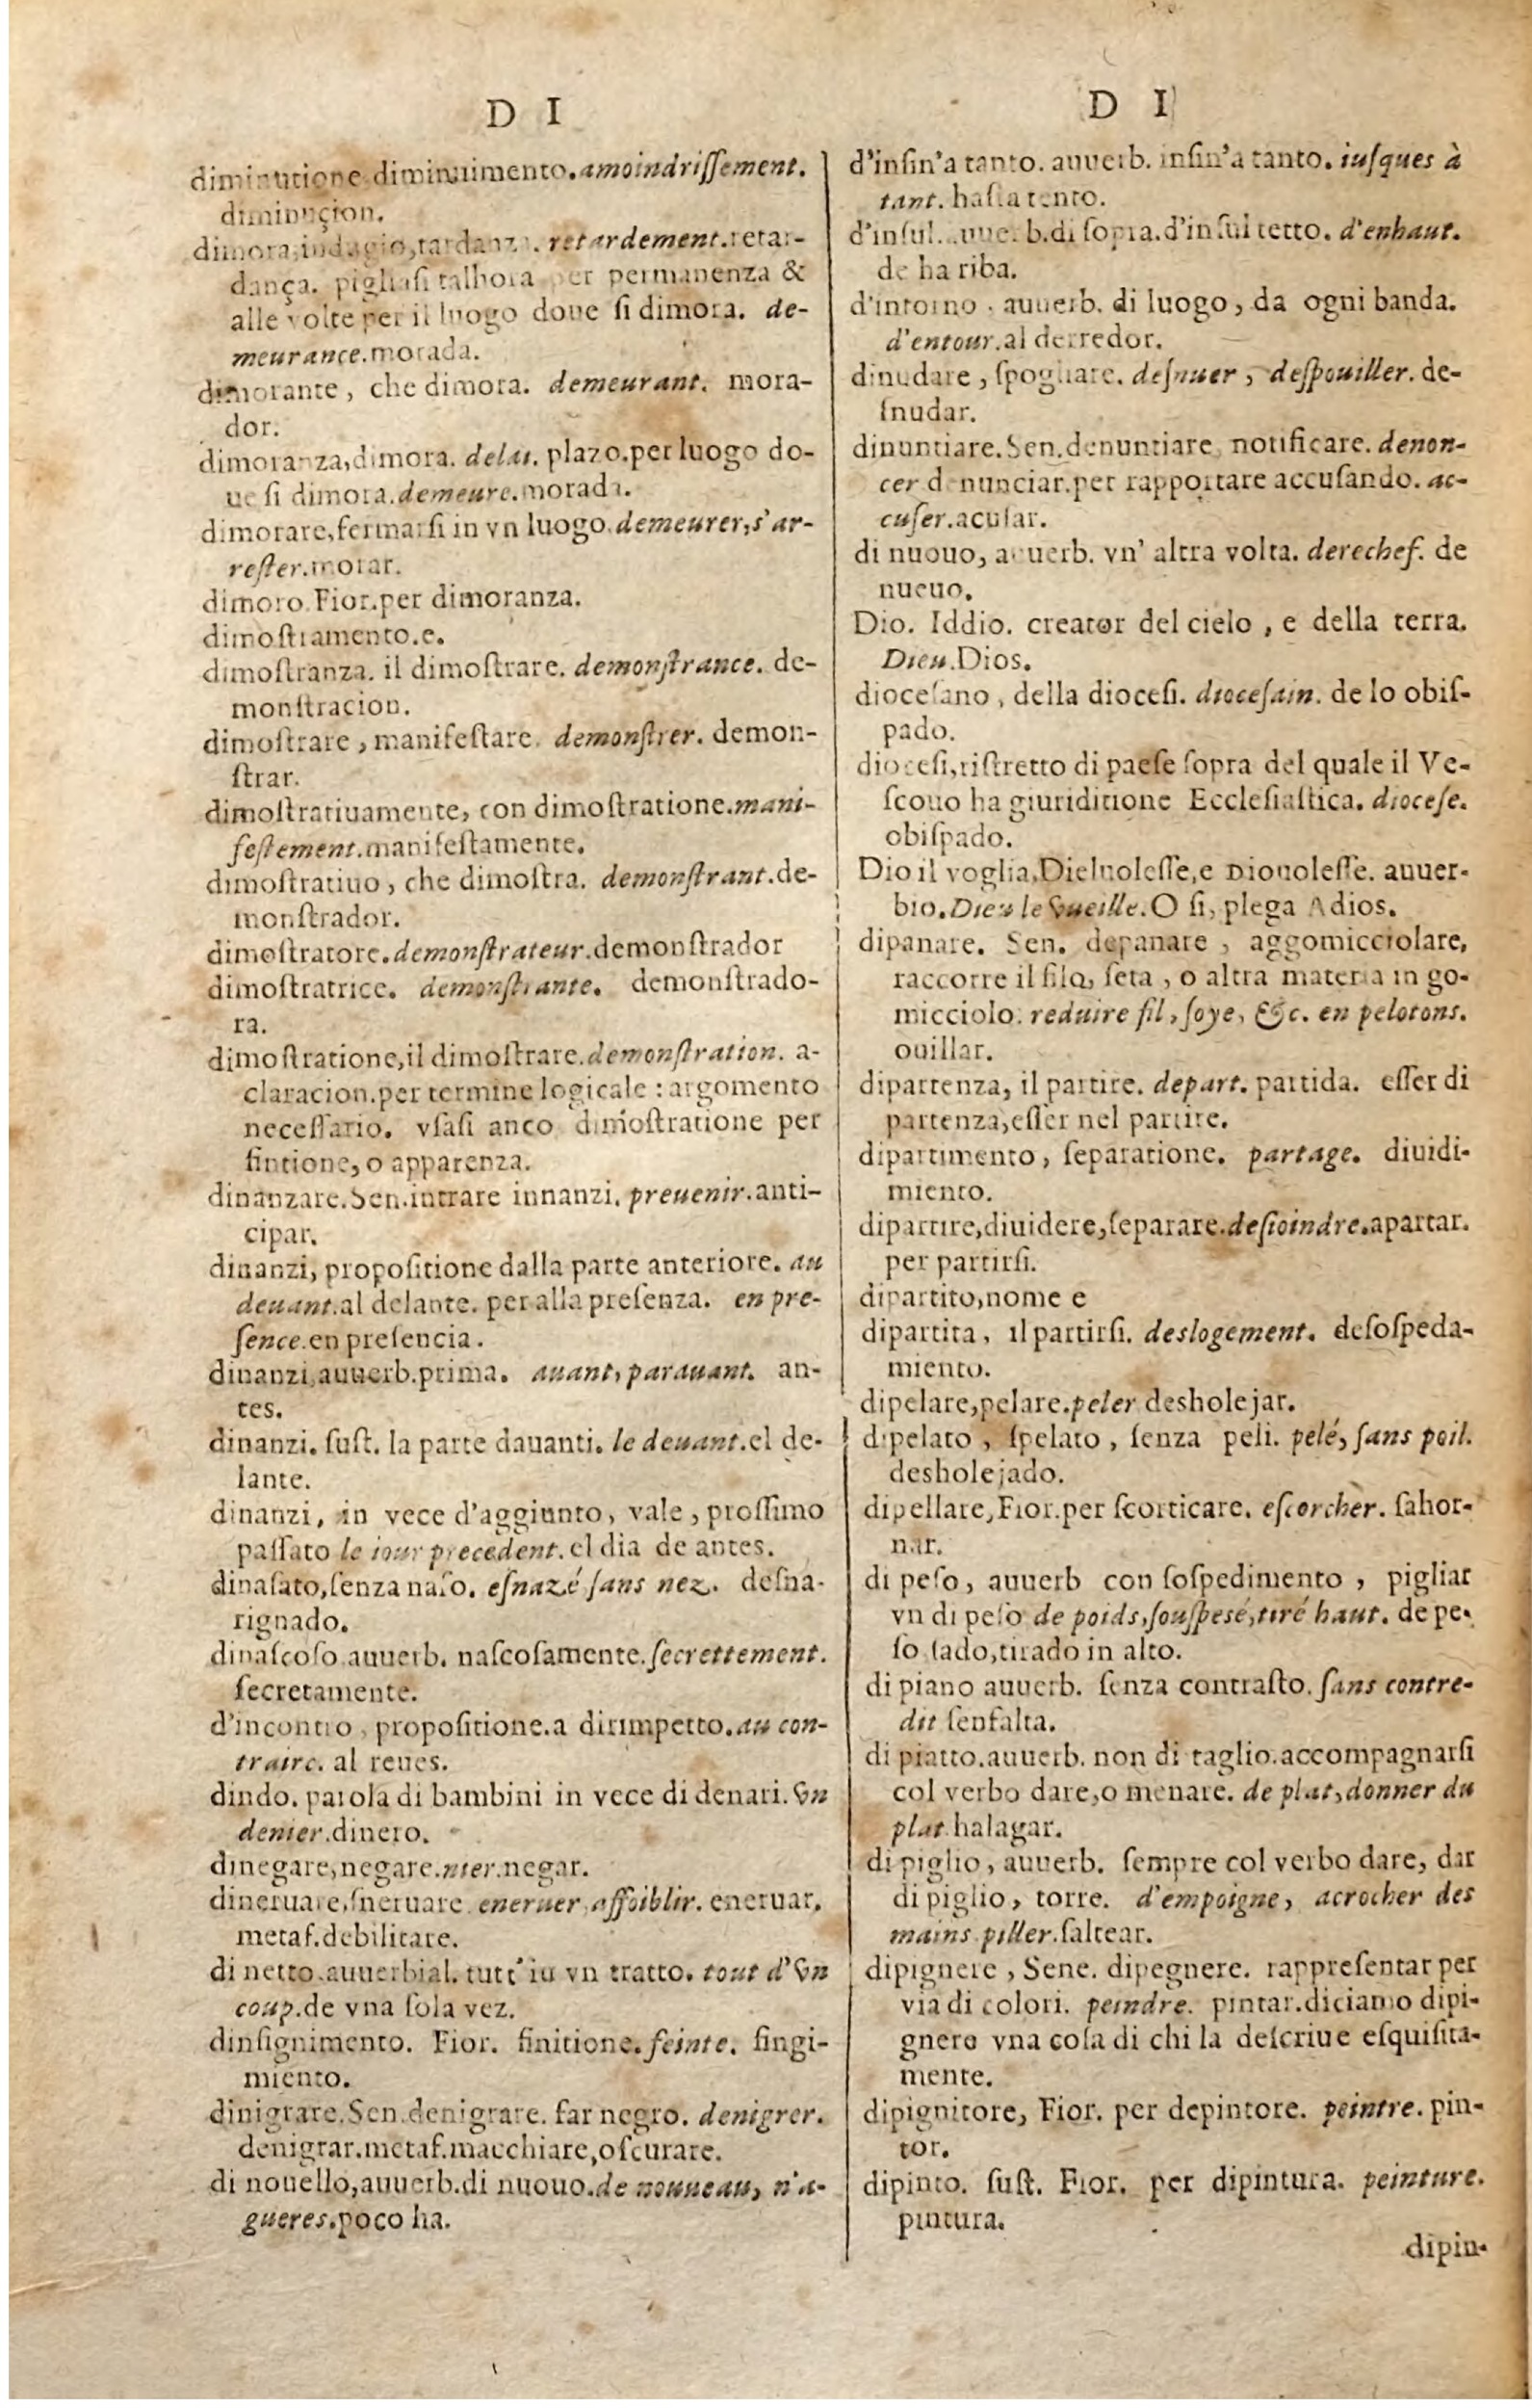 D I
diminutione diminuimento.amoindriſſement.
diminuçion.
dimora,indugio,tardanza. retardement.retar-
dança. pigliaſi talhora per permanenza &
alle volte per il luogo doue ſi dimora. de-
meurance.morada.
dimorante, che dimora. demeurant. mora-
dor.
dimoranza,dimora. delai. plazo.per luogo do-
ue ſi dimora.demeure.morada.
dimorare,fermarſi in vn luogo.demeurer,s'ar-
reſter.morar.
dimoro.Fior.per dimoranza.
dimoſtramento.e.
dimoſtranza. il dimoſtrare. demonſtrance. de-
monſtracion.
dimoſtrare, manifeſtare. demonſtrer. demon-
ſtrar.
dimoſtratiuamente, con dimoſtratione.mani-
feſtement.manifeſtamente.
dimoſtratiuo, che dimoſtra. demonſtrant.de-
monſtrador.
dimoſtratore.demonſtrateur.demonſtrador
dimoſtratrice. demonſtrante. demonſtrado-
ra.
dimoſtratione,il dimoſtrare.demonſtration. a-
claracion.per termine logicale : argomento
neceſſario. vſaſi anco dimoſtratione per
fintione, o apparenza.
dinanzare.Sen.intrare innanzi. preuenir.anti-
cipar.
dinanzi, propoſitione dalla parte anteriore. au
deuant.al delante. per alla preſenza. en pre-
ſence.en preſencia.
dinanzi,auuerb.prima. auant, parauant. an-
tes.
dinanzi. ſuſt. la parte dauanti. le deuant.el de-
lante.
dinanzi, in vece d'aggiunto, vale, proſſimo
paſſato le iour precedent. el dia de antes.
dinaſato,ſenza naſo. eſnazé ſans nez. deſna-
rignado.
dinaſcoſo.auuerb. naſcoſamente.ſecrettement.
ſecretamente.
d'incontro, propoſitione.a dirimpetto.au con-
traire. al reues.
dindo. parola di bambini in vece di denari. vn
denier.dinero.
dinegare,negare.nier.negar.
dineruare,ſneruare. eneruer,affoiblir. eneruar.
metaf.debilitare.
di netto.auuerbial. tutt'in vn tratto. tout d'vn
coup.de vna ſola vez.
dinſignimento. Fior. finitione.feinte. fingi-
miento.
dinigrare.Sen.denigrare. far negro. denigrer.
denigrar.metaf.macchiare,oſcurare.
di nouello,auuerb.di nuouo.de nouueau, n'a-
gueres.poco ha.
D I
d'inſin'a tanto. auuerb. inſin'a tanto. iuſques à
tant. haſta tento.
d'inſul. auuerb.di ſopra.d'inſul tetto. d'enhaut.
de ha riba.
d'intorno . auuerb. di luogo, da ogni banda.
d'entour.al derredor.
dinudare, ſpogliare. deſnuer, deſpouiller. de-
ſnudar.
dinuntiare.Sen.denuntiare, notificare. denon-
cer denunciar.per rapportare accuſando. ac-
cuſer.acuſar.
di nuouo, auuerb. vn' altra volta. derechef. de
nueuo.
Dio. Iddio. creator del cielo, e della terra.
Dieu.Dios.
dioceſano, della dioceſi. dioceſain. de lo obiſ-
pado.
dioceſi,riſtretto di paeſe ſopra del quale il Ve-
ſcouo ha giuriditione Eccleſiaſtica. dioceſe.
obiſpado.
Dio il voglia,Dieluoleſſe,e Diouoleſſe. auuer-
bio.Dieu le vueille.O ſi, plega Adios.
dipanare. Sen. depanare, aggomicciolare,
raccorre il filo, ſeta, o altra materia in go-
micciolo. reduire fil, ſoye, &c. en pelotons.
ouillar.
dipartenza, il partire. depart. partida. eſſer di
partenza,eſſer nel partire.
dipartimento, ſeparatione. partage. diuidi-
miento.
dipartire,diuidere,ſeparare.deſioindre.apartar.
per partirſi.
dipartito,nome e
dipartita, il partirſi. deslogement. deſoſpeda-
miento.
dipelare,pelare.peler desholejar.
dipelato, ſpelato, ſenza peli. pelé, ſans poil.
desholejado.
dipellare,Fior.per ſcorticare. eſcorcher. ſahor-
nar.
di peſo, auuerb con ſoſpedimento, pigliar
vn di peſo de poids,ſouſpesé,tiré haut. de pe-
ſo ſado,tirado in alto.
di piano auuerb. ſenza contraſto. ſans contre-
dit ſenfalta.
di piatto.auuerb. non di taglio.accompagnarſi
col verbo dare,o menare. de plat,donner du
plat.halagar.
di piglio, auuerb. ſempre col verbo dare, dar
di piglio, torre. d'empoigne, acrocher des
mains.piller.ſaltear.
dipignere, Sene. dipegnere. rappreſentar per
via di colori. peindre. pintar.diciamo dipi-
gnere vna coſa di chi la deſcriue eſquiſita-
mente.
dipignitore, Fior. per depintore. peintre. pin-
tor.
dipinto. ſuſt. Fior. per dipintura. peinture.
pintura.
dipin-